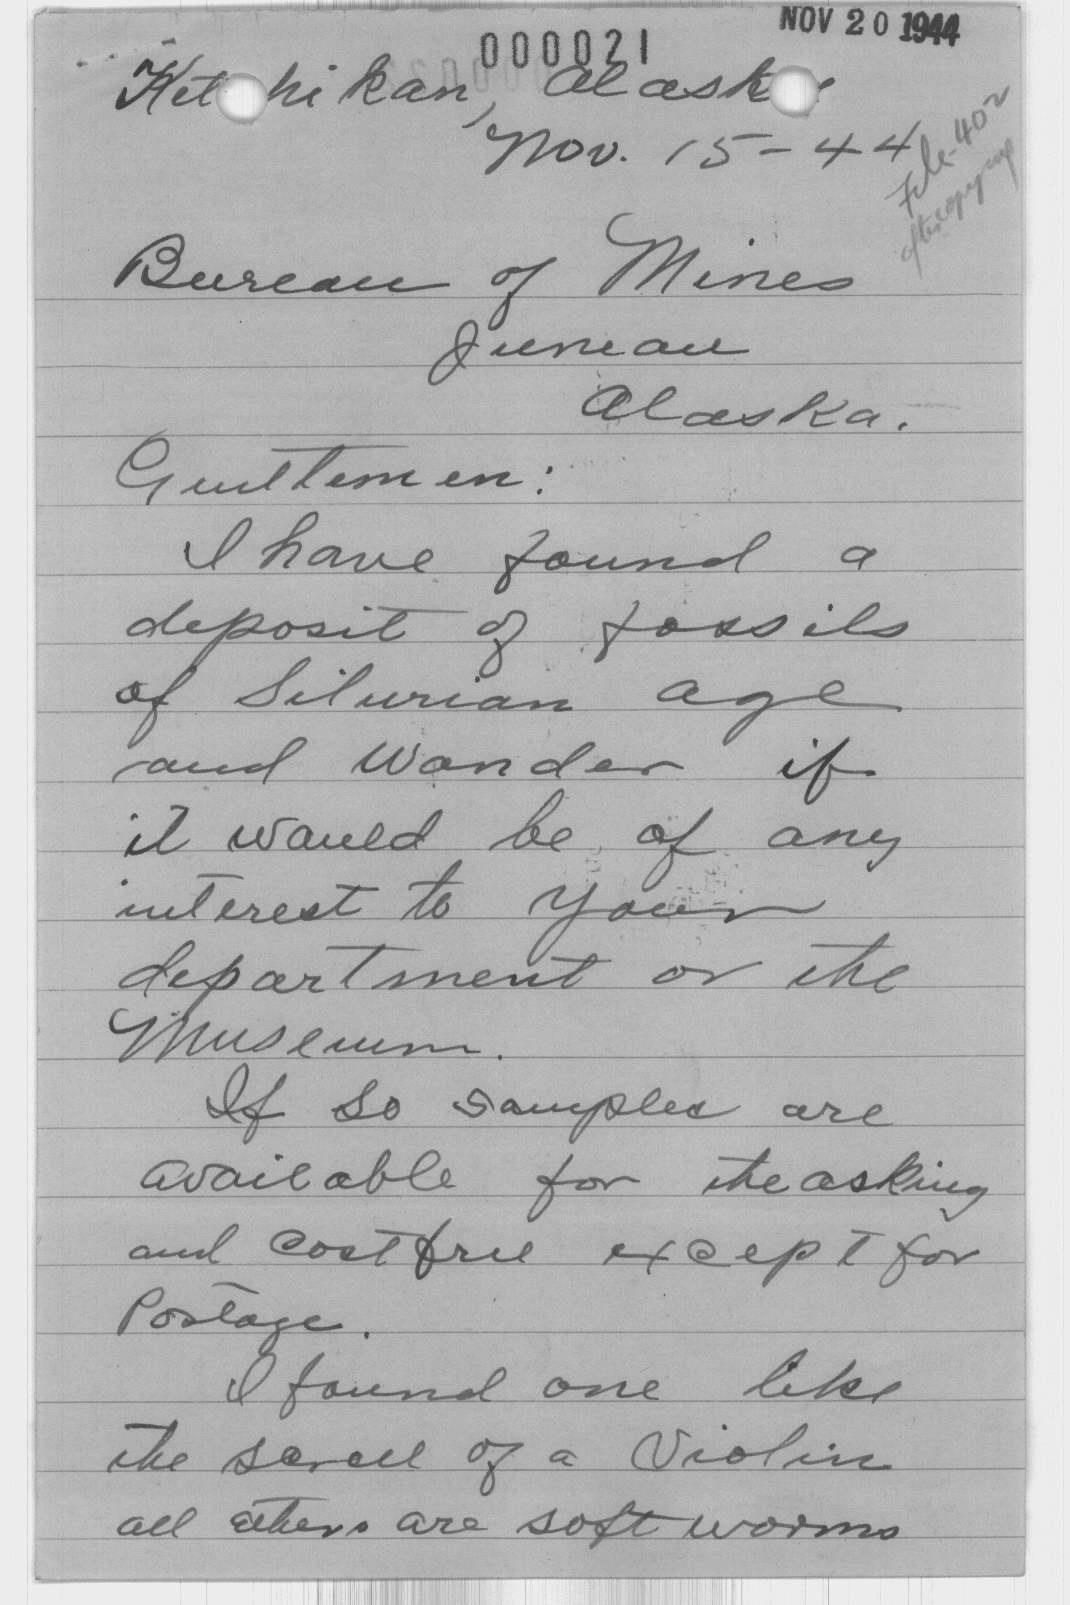 NOV 20 1944
000021
Ketchikan, Alaska
Nov. 15-44
File-402
after copying
Bureau of Mines
Juneau
Alaska.
Gentlemen:
I have found a
deposit of fossils
of Silurian age
and wonder if
it would be of any
interest to your
department or the
Museum.
If so samples are
available for the asking
and cost free except for
Postage.
I found one like
the scroll of a Violin
all others are soft worms